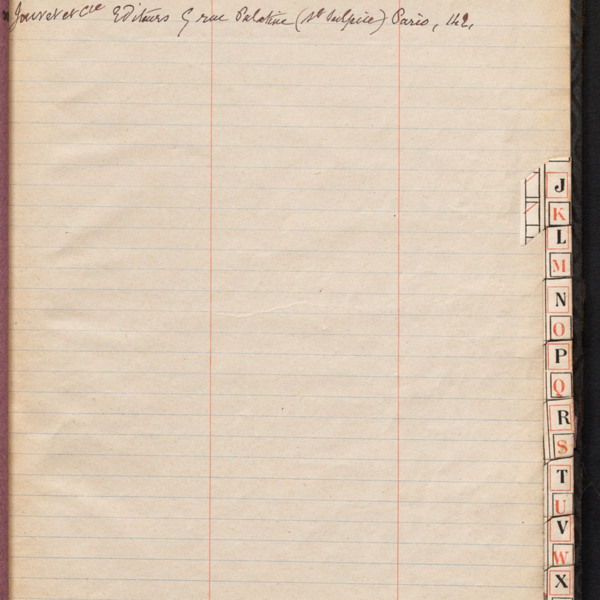 Jouvet et Cie Editeurs 5 rue Palatine (St Sulpice) Paris, 142,
J
K
L
M
N
O
P
Q
R
S
T
U
V
W
X